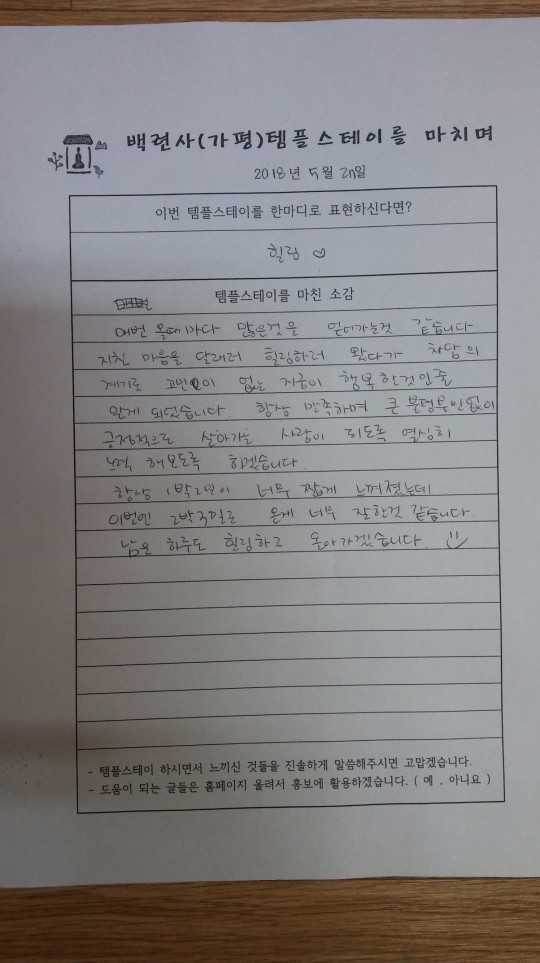 백련사(가평)템플스테이를 마치며
2018년 5월 20일
이번 템플스테이를 한마디로 표현하신다면?
힐링 ♡
템플스테이를 마친 소감
매번 올때마다 많은것을 얻어가는것 같습니다
지친 마음을 달래러 힐링하러 왔다가 차담의
계기로 고민이 없는 지금이 행복한것인줄
알게 되었습니다. 항상 만족하며 큰 불평불만없이
긍정적으로 살아가는 사람이 되도록 열심히
노력 해보도록 하겠습니다.
항상 1박2일이 너무 짧게 느껴졌는데
이번엔 2박3일로 온게 너무 잘한것 같습니다.
남은 하루도 힐링하고 돌아가겠습니다.
- 템플스테이 하시면서 느끼신 것들을 진솔하게 말씀해주시면 고맙겠습니다.
- 도움이 되는 글들은 홈페이지 올려서 홍보에 활용하겠습니다. ( 예 , 아니요 )